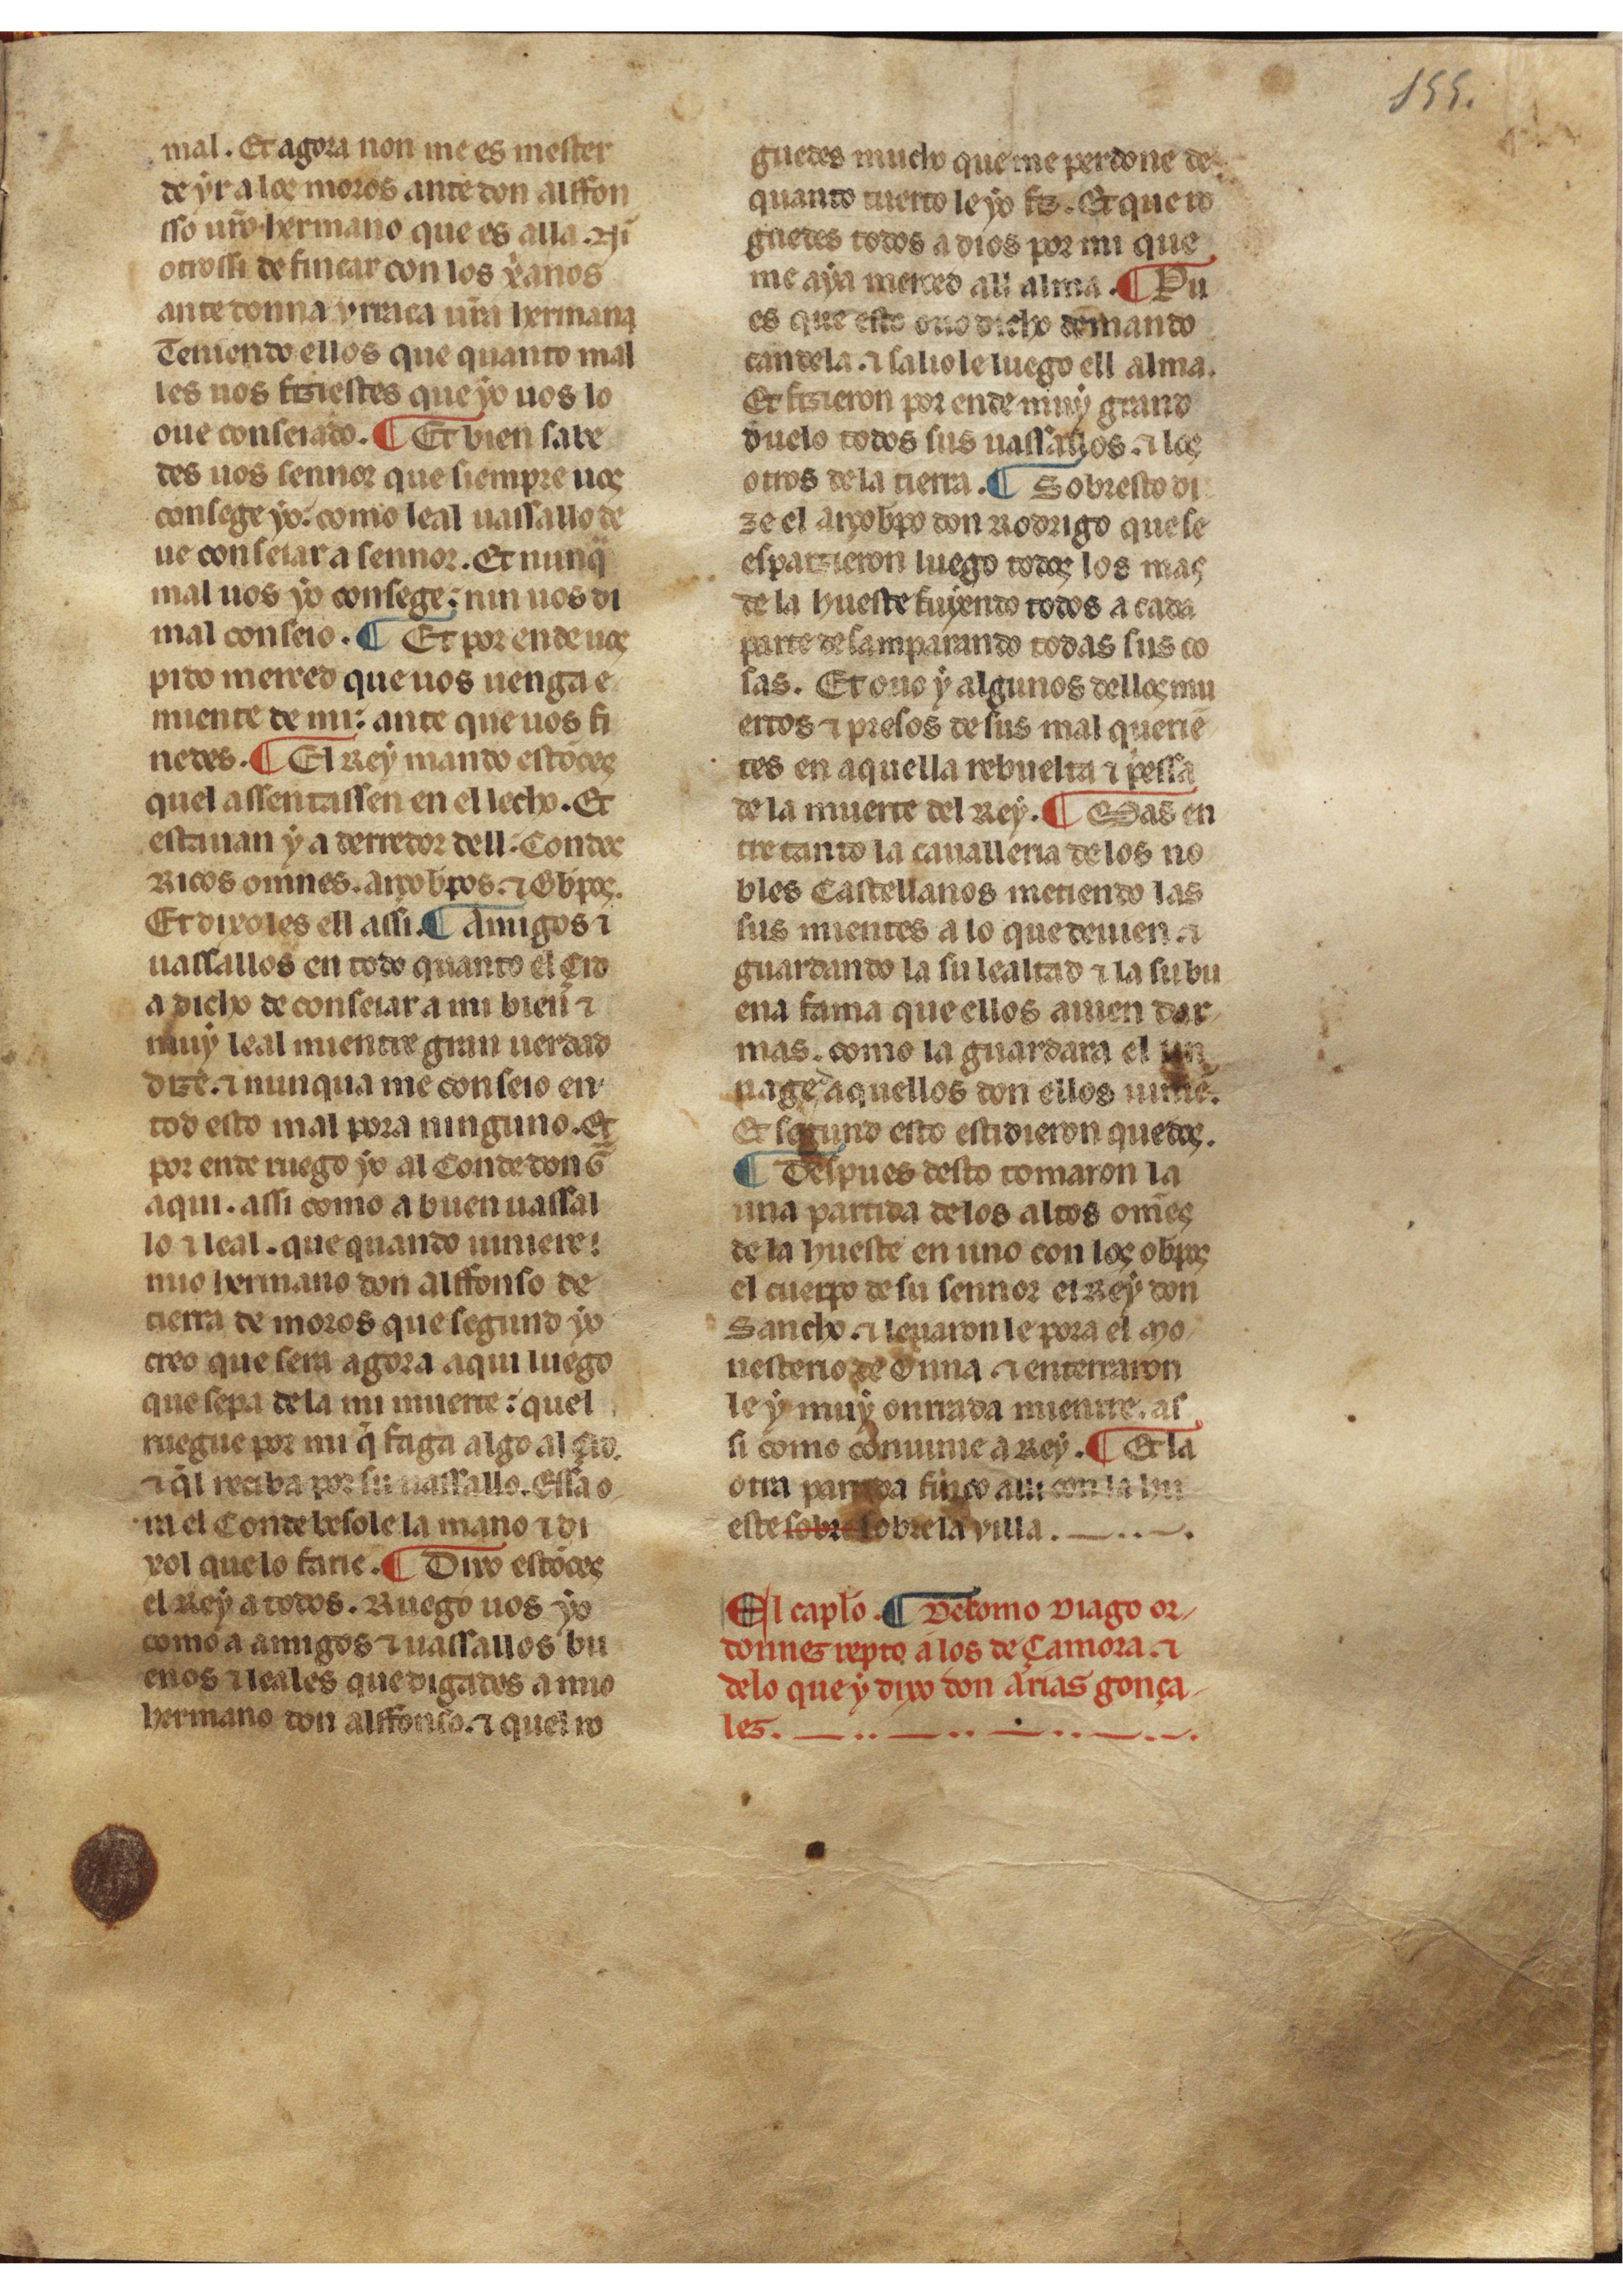 155.
mal. Et agora non me es mester
de yr a los moros ante don alffon
sso uro hermano que es alla. Ni
otrossi de fincar con los xanos
ante donna vrraca ura hermana
Teniendo ellos que quanto mal
les uos fiziestes que yo uos lo
oue conseiado. ¶ Et bien sabe
des uos sennor que siempre uos
consege yo: como leal uassallo de
ue conseiar a sennor. Et nunq̄
mal uos yo consege: nin uos di
mal conseio. ¶ Et por ende uos
pido merced que uos uenga e
miente de mi: ante que uos fi
nedes. ¶ El Rey mando estōces
quel assentassen en el lecho. Et
estauan y a derredor dell. Condes
Ricos omnes. arçobpos. ⁊ Obpos.
Et dixoles ell assi. ¶ Amigos ⁊
uassallos en todo quanto el Çid
a dicho de conseiar a mi bien ⁊
muy leal mientre gran uerdad
dize. ⁊ nunqua me conseio en
tod esto mal pora ninguno. Et
por ende ruego yo al Conde don G̃
aqui. assi como a buen uassal
lo ⁊ leal. que quando uiniere:
mio hermano don Alffonso de
tierra de moros que segund yo
creo que sera agora aqui luego
que sepa de la mi muerte: quel
ruegue por mi q̄ faga algo al Çid.
⁊ q̄l reciba por su uassallo. Essa o
ra el Conde besole la mano ⁊ di
xol que lo farie. ¶ Dixo estōces
el Rey a todos. Ruego uos yo
como a amigos ⁊ uassallos bu
enos ⁊ leales que digades a mio
hermano don alffonso. ⁊ quel ro
guedes mucho que me perdone de
quanto tuerto le yo fiz. Et que ro
guedes todos a dios por mi que
me aya merced all alma. ¶ Pu
es que esto ouo dicho demando
candela. ⁊ saliole luego ell alma.
Et fizieron por ende muy grand
duelo todos sus uassallos. ⁊ los
otros de la tierra. ¶ Sobresto di
ze el arçobpo don Rodrigo que se
esparzieron luego todos los mas
de la hueste fuyendo todos a cada
parte desamparando todas sus co
sas. Et ouo y algunos dellos mu
ertos ⁊ presos de sus mal queriē
tes en aquella rebuelta ⁊ pessa
de la muerte del Rey. ¶ Mas en
tre tanto la caualleria de los no
bles Castellanos metiendo las
sus mientes a lo que deuien. ⁊
guardando la su lealtad ⁊ la su bu
ena fama que ellos auien dar
mas. como la guardara el lin
nage daquellos don ellos uiniē.
Et segund esto estidieron quedos.
¶ Despues desto tomaron la
una partida de los altos omēs
de la hueste en uno con los obpos
el cuerpo de su sennor el Rey don
Sancho. ⁊ leuaron le pora el Mo
nesterio de Onna. ⁊ enterraron
le y muy onrrada mientre. as
si como conuinie a Rey. ¶ Et la
otra partida finco alli con la hu
este sobre sobre la villa.
El caplo. ¶ De como Diago or
donnez repto a los de Çamora. ⁊
delo que y dixo don Arias gonça
lez.